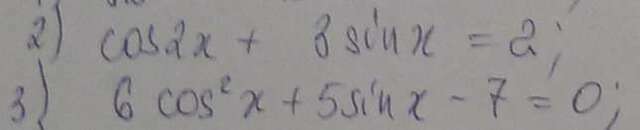 2) cos2x + 3sinx = 2;
3) 6 cos²x + 5sinx - 7 = 0;